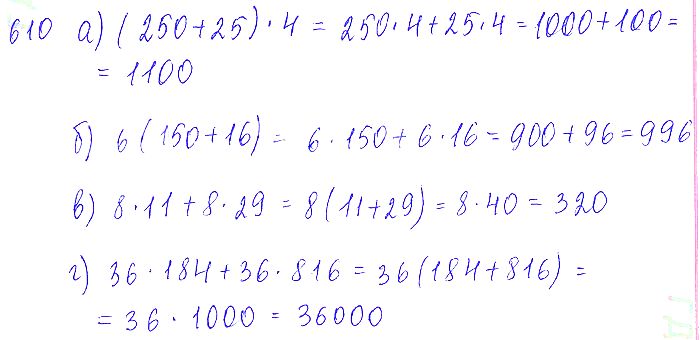 610 а) (250+25)·4 = 250·4+25·4 = 1000+100 =
= 1100
б) 6(150+16) = 6·150+6·16 = 900+96 = 996
в) 8·11+8·29 = 8(11+29) = 8·40 = 320
г) 36·184+36·816 = 36(184+816) =
= 36·1000 = 36000